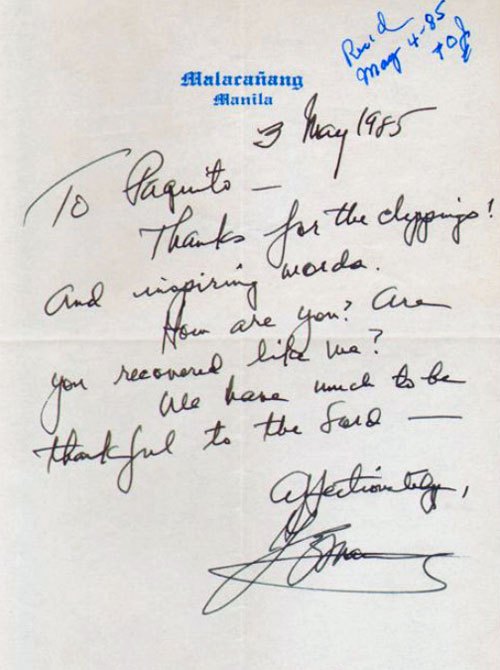 Rec'd
May 4-85
Malacañang
Manila
3 May 1985
To Paquito —
Thanks for the clippings!
and inspiring words.
How are you? Are
you recovered like me?
We have much to be
thankful to the Lord —
Affectionately,